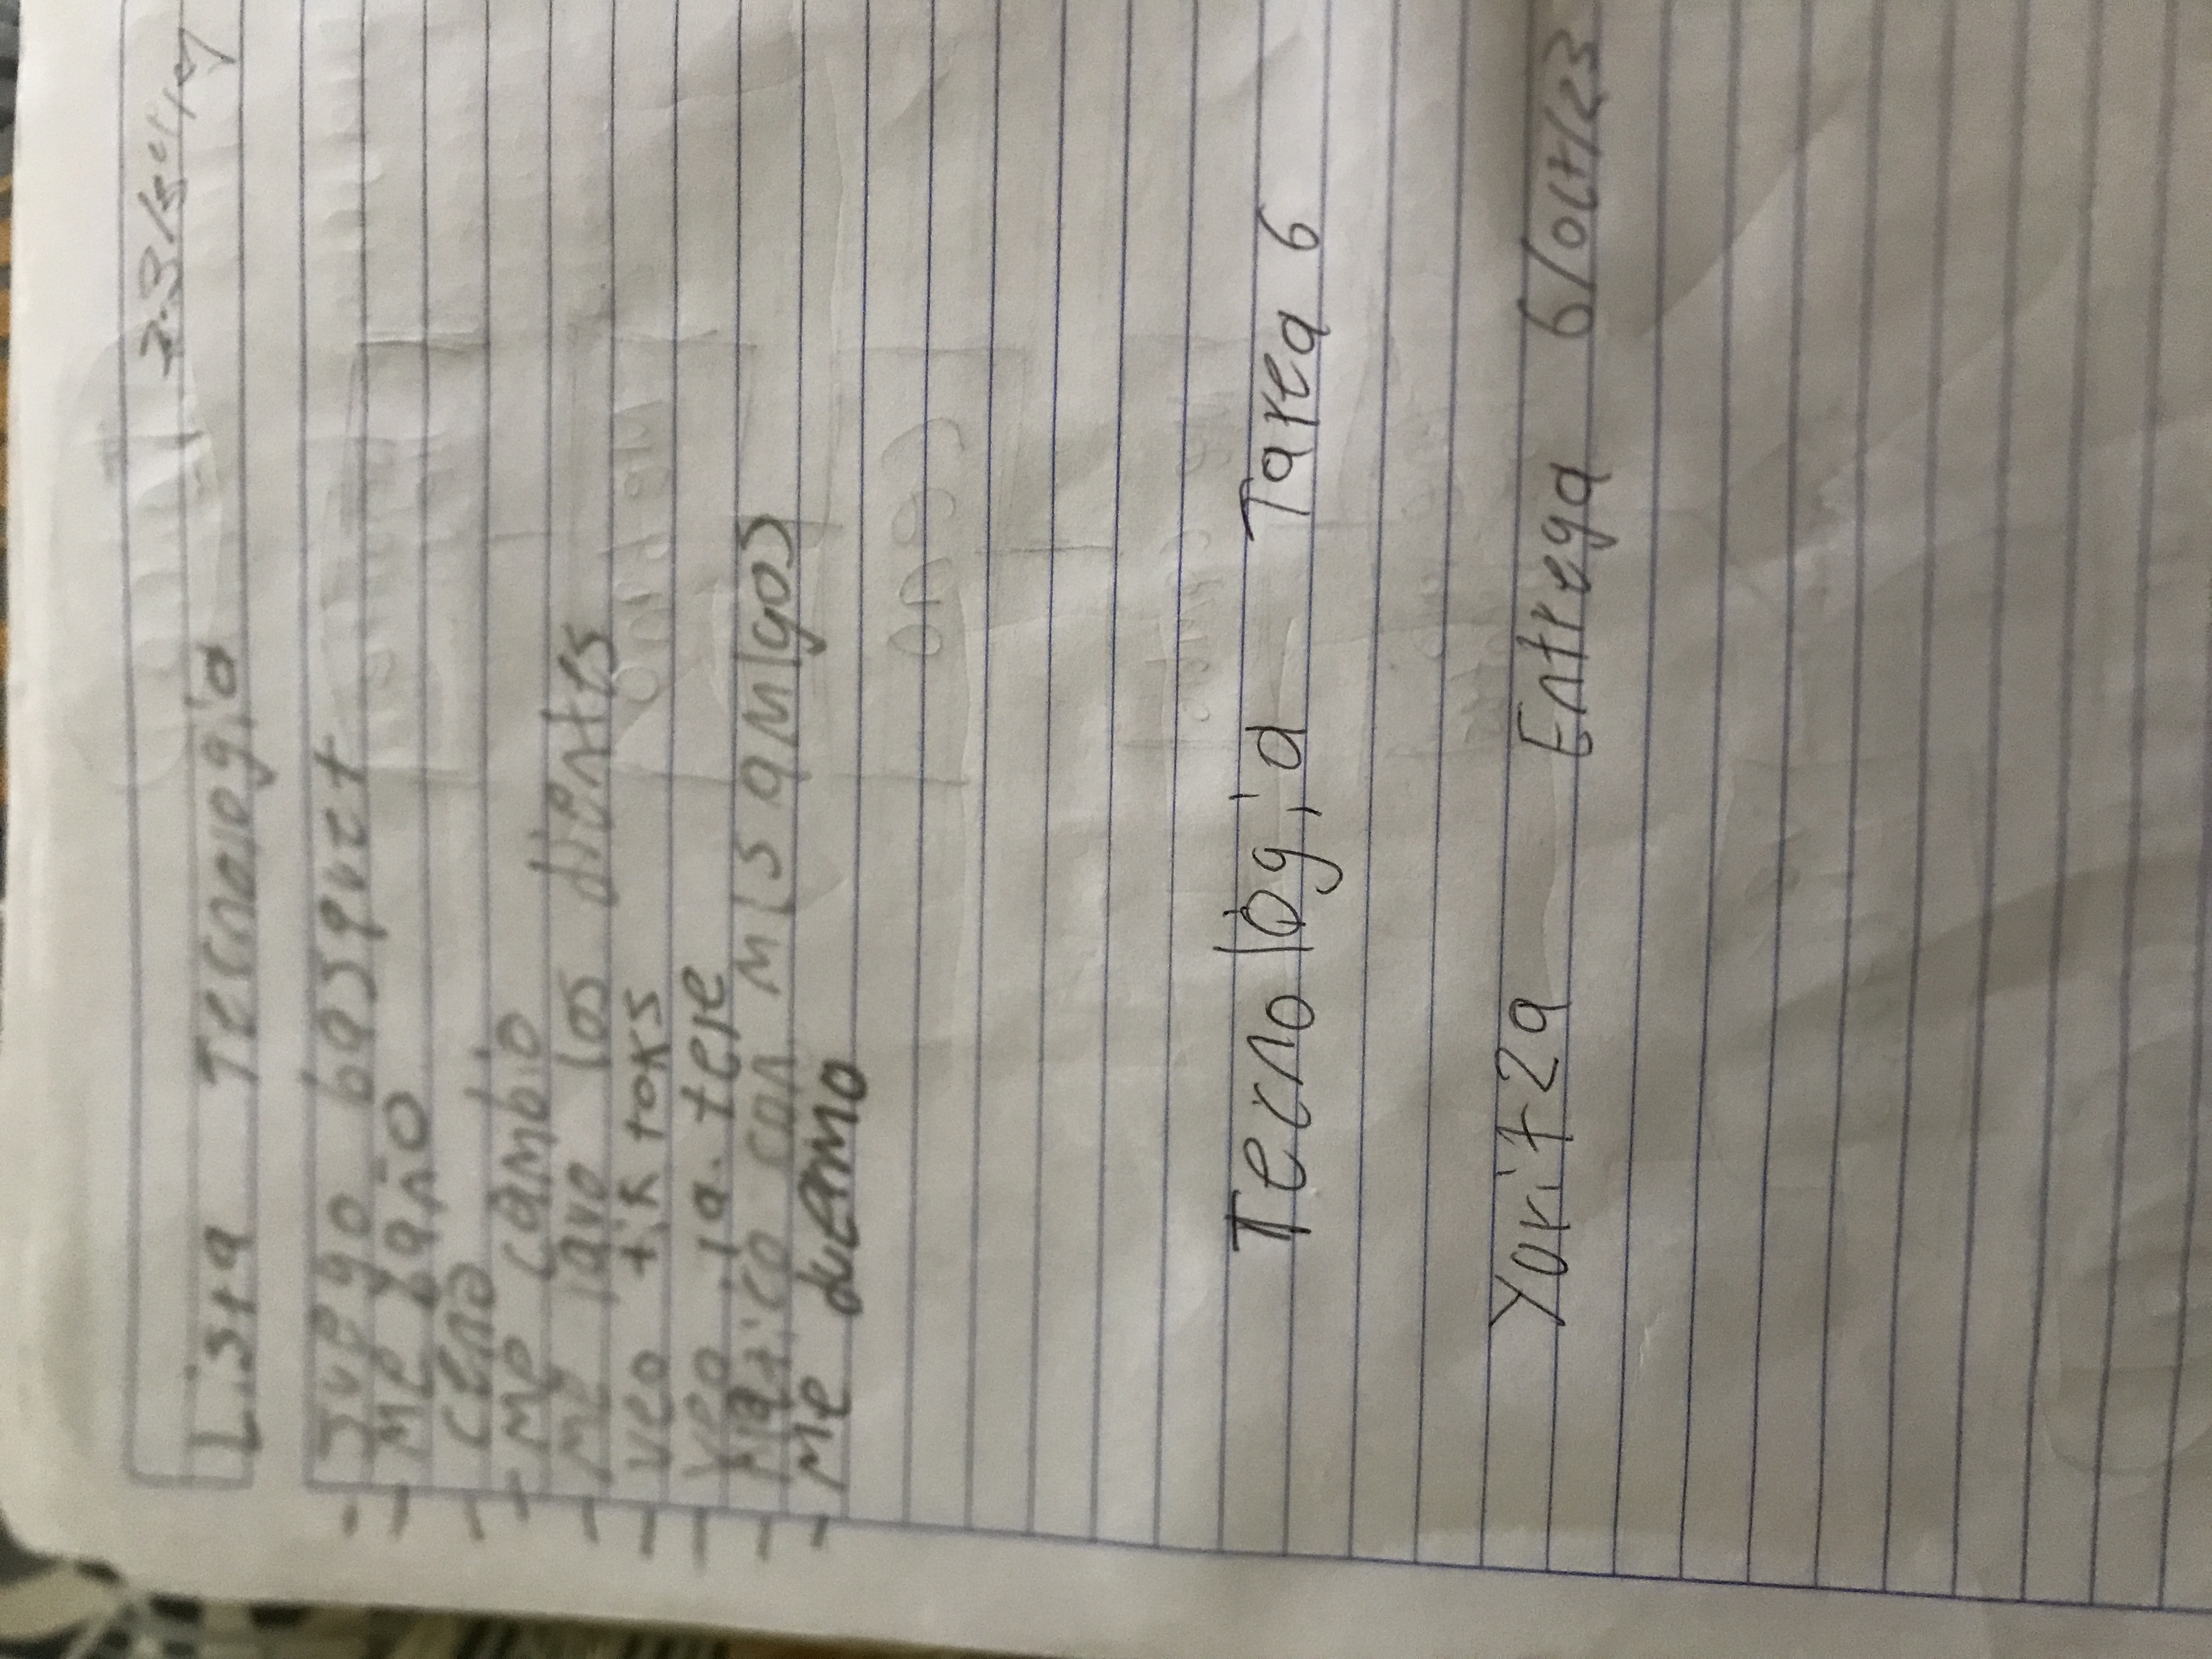 Lista Tecnología
- Juego basquet
- Me baño
- Ceno
- Me cambio
- Me lavo los dientes
- veo tik toks
- Veo la tele
- Platico con mis amigos
- Me duermo
Tecnología Tarea 6
Yaritza Entrega 6/oct/23